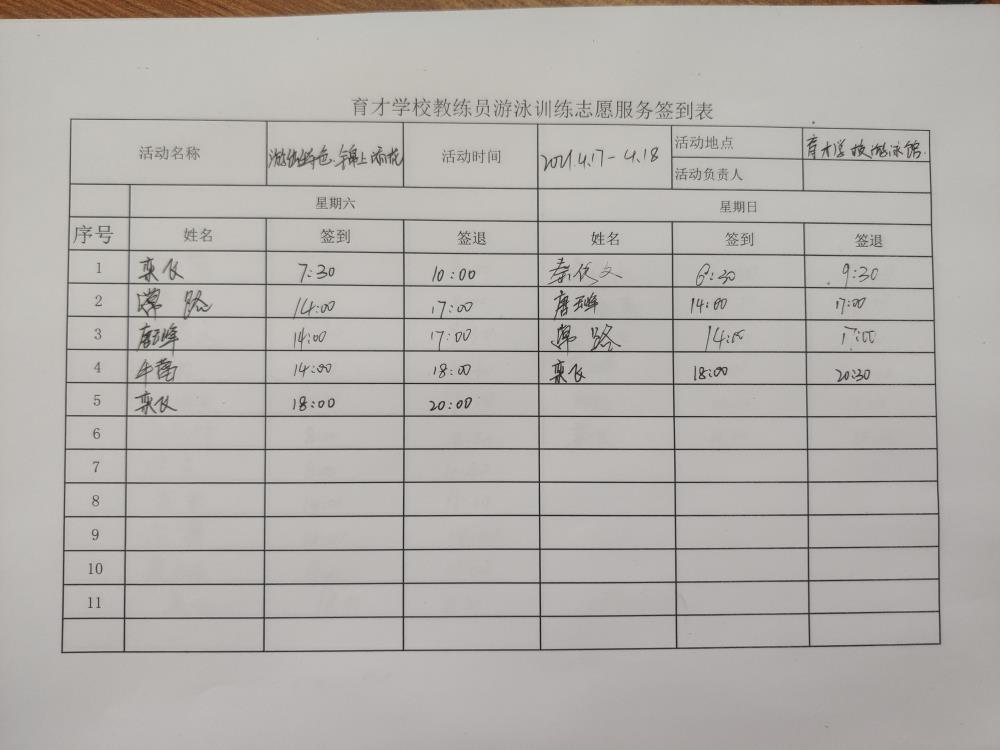 育才学校教练员游泳训练志愿服务签到表
活动名称 游泳特色 锦上添花 活动时间 2021.4.17-4.18 活动地点 育才学校游泳馆
活动负责人
星期六 星期日
序号 姓名 签到 签退 姓名 签到 签退
1 栾飞 7:30 10:00 秦 文 6:30 9:30
2 常路 14:00 17:00 唐玉峰 14:00 17:00
3 唐玉峰 14:00 17:00 常路 14:00 17:00
4 牛苗 14:00 18:00 栾飞 18:00 20:30
5 栾飞 18:00 20:00
6
7
8
9
10
11